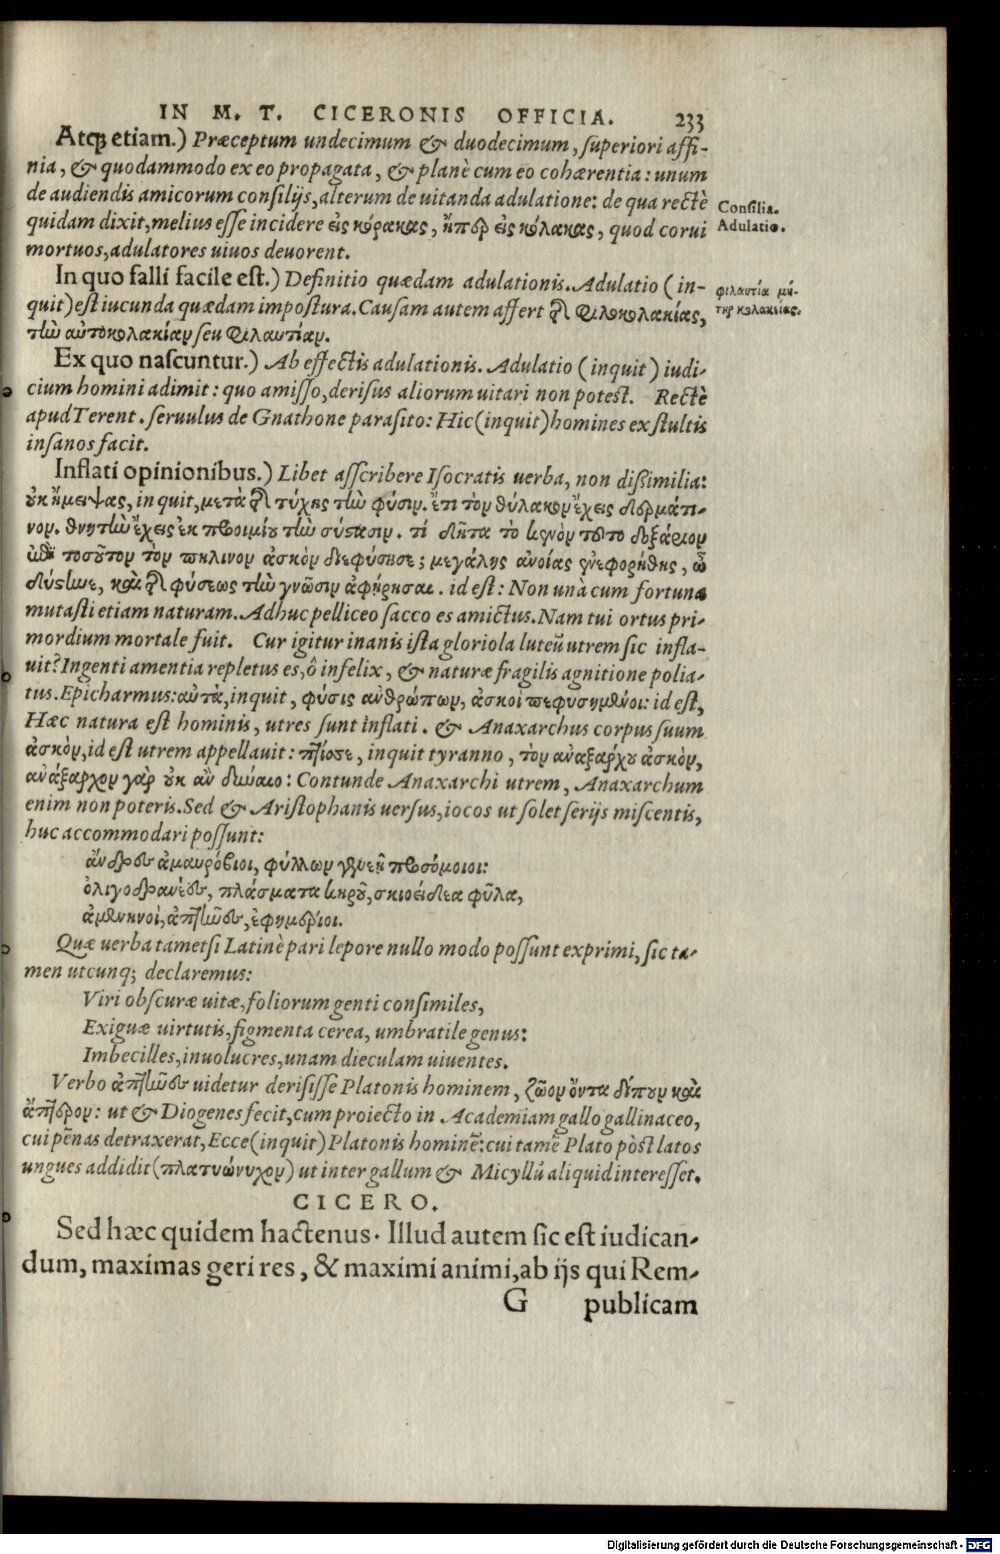 IN M. T. CICERONIS OFFICIA. 233
Atq; etiam.) Præceptum undecimum & duodecimum, superiori affi-
nia, & quodammodo ex eo propagata, & planè cum eo cohærentia: unum
de audiendis amicorum consilijs, alterum de uitanda adulatione: de qua rectè
Consilia.
quidam dixit, melius esse incidere εἰς κόρακας, ἤπερ εἰς κόλακας, quod corui
Adulatio.
mortuos, adulatores uiuos deuorent.
In quo falli facile est.) Definitio quædam adulationis. Adulatio (in-
φιλαυτία μή-
quit) est iucunda quædam impostura. Causam autem affert τὴν φιλοκολακίας,
τηρ κολακείας.
τὴν αὐτοκολακίαν seu φιλαυτίαν.
Ex quo nascuntur.) Ab effectis adulationis. Adulatio (inquit) iudi-
cium homini adimit: quo amisso, derisus aliorum uitari non potest. Rectè
apud Terent. seruulus de Gnathone parasito: Hic (inquit) homines ex stultis
insanos facit.
Inflati opinionibus.) Libet asscribere Isocratis uerba, non dißimilia:
οὐκ ἤμειψας, inquit, μετὰ τῆς τύχης τὴν φύσιν. ἔτι τὸν θύλακον ἔχεις δερμάτι-
νον. θνητὴν ἔχεις ἐκ προιμίου τὴν σύστασιν. τί δῆτα τὸ κενὸν τοῦτο δοξάριον
τοσοῦτον τὸν πηλινον ἀσκὸν διεφύσησε; μεγάλης ἀνοίας ἐνεφορήθης, ὦ
δύστηνε, καὶ τῆς φύσεως τὴν γνῶσιν ἀφῄρησαι. id est: Non unà cum fortuna
mutasti etiam naturam. Adhuc pelliceo sacco es amictus. Nam tui ortus pri-
mordium mortale fuit. Cur igitur inanis ista gloriola luteũ utrem sic infla-
uit? Ingenti amentia repletus es, ô infelix, & naturæ fragilis agnitione polia-
tus. Epicharmus: αὐτὰ, inquit, φύσις ἀνθρώπων, ἀσκοὶ πεφυσημένοι: id est,
Hæc natura est hominis, utres sunt inflati. & Anaxarchus corpus suum
ἀσκὸν, id est utrem appellauit: πτίσσε, inquit tyranno, τὸν ἀναξάρχου ἀσκὸν,
ἀνάξαρχον γὰρ οὐκ ἂν δύναιο: Contunde Anaxarchi utrem, Anaxarchum
enim non poteris. Sed & Aristophanis uersus, iocos ut solet serijs miscentis,
huc accommodari possunt:
ἄνδρες ἀμαυρόβιοι, φύλλων γενεῇ προσόμοιοι:
ὀλιγοδρανέες, πλάσματα κηροῦ, σκιοείδεα φῦλα,
ἀμενηνοὶ, ἀπτῆνες, ἐφημέριοι.
Quæ uerba tametsi Latinè pari lepore nullo modo possunt exprimi, sic ta-
men utcunq; declaremus:
Viri obscuræ uitæ, foliorum genti consimiles,
Exiguæ uirtutis, figmenta cerea, umbratile genus:
Imbecilles, inuolucres, unam dieculam uiuentes.
Verbo ἀπτῆνες uidetur derisisse Platonis hominem, ζῶον ὄντα δίπουν καὶ
ἄπτερον: ut & Diogenes fecit, cum proiecto in Academiam gallo gallinaceo,
cui pẽnas detraxerat, Ecce (inquit) Platonis hominẽ: cui tamẽ Plato pòst latos
ungues addidit (πλατυώνυχον) ut inter gallum & Micyllũ aliquid interesset.
CICERO.
Sed hæc quidem hactenus. Illud autem sic est iudican-
dum, maximas geri res, & maximi animi, ab ijs qui Rem-
G publicam
Digitalisierung gefördert durch die Deutsche Forschungsgemeinschaft - DFG